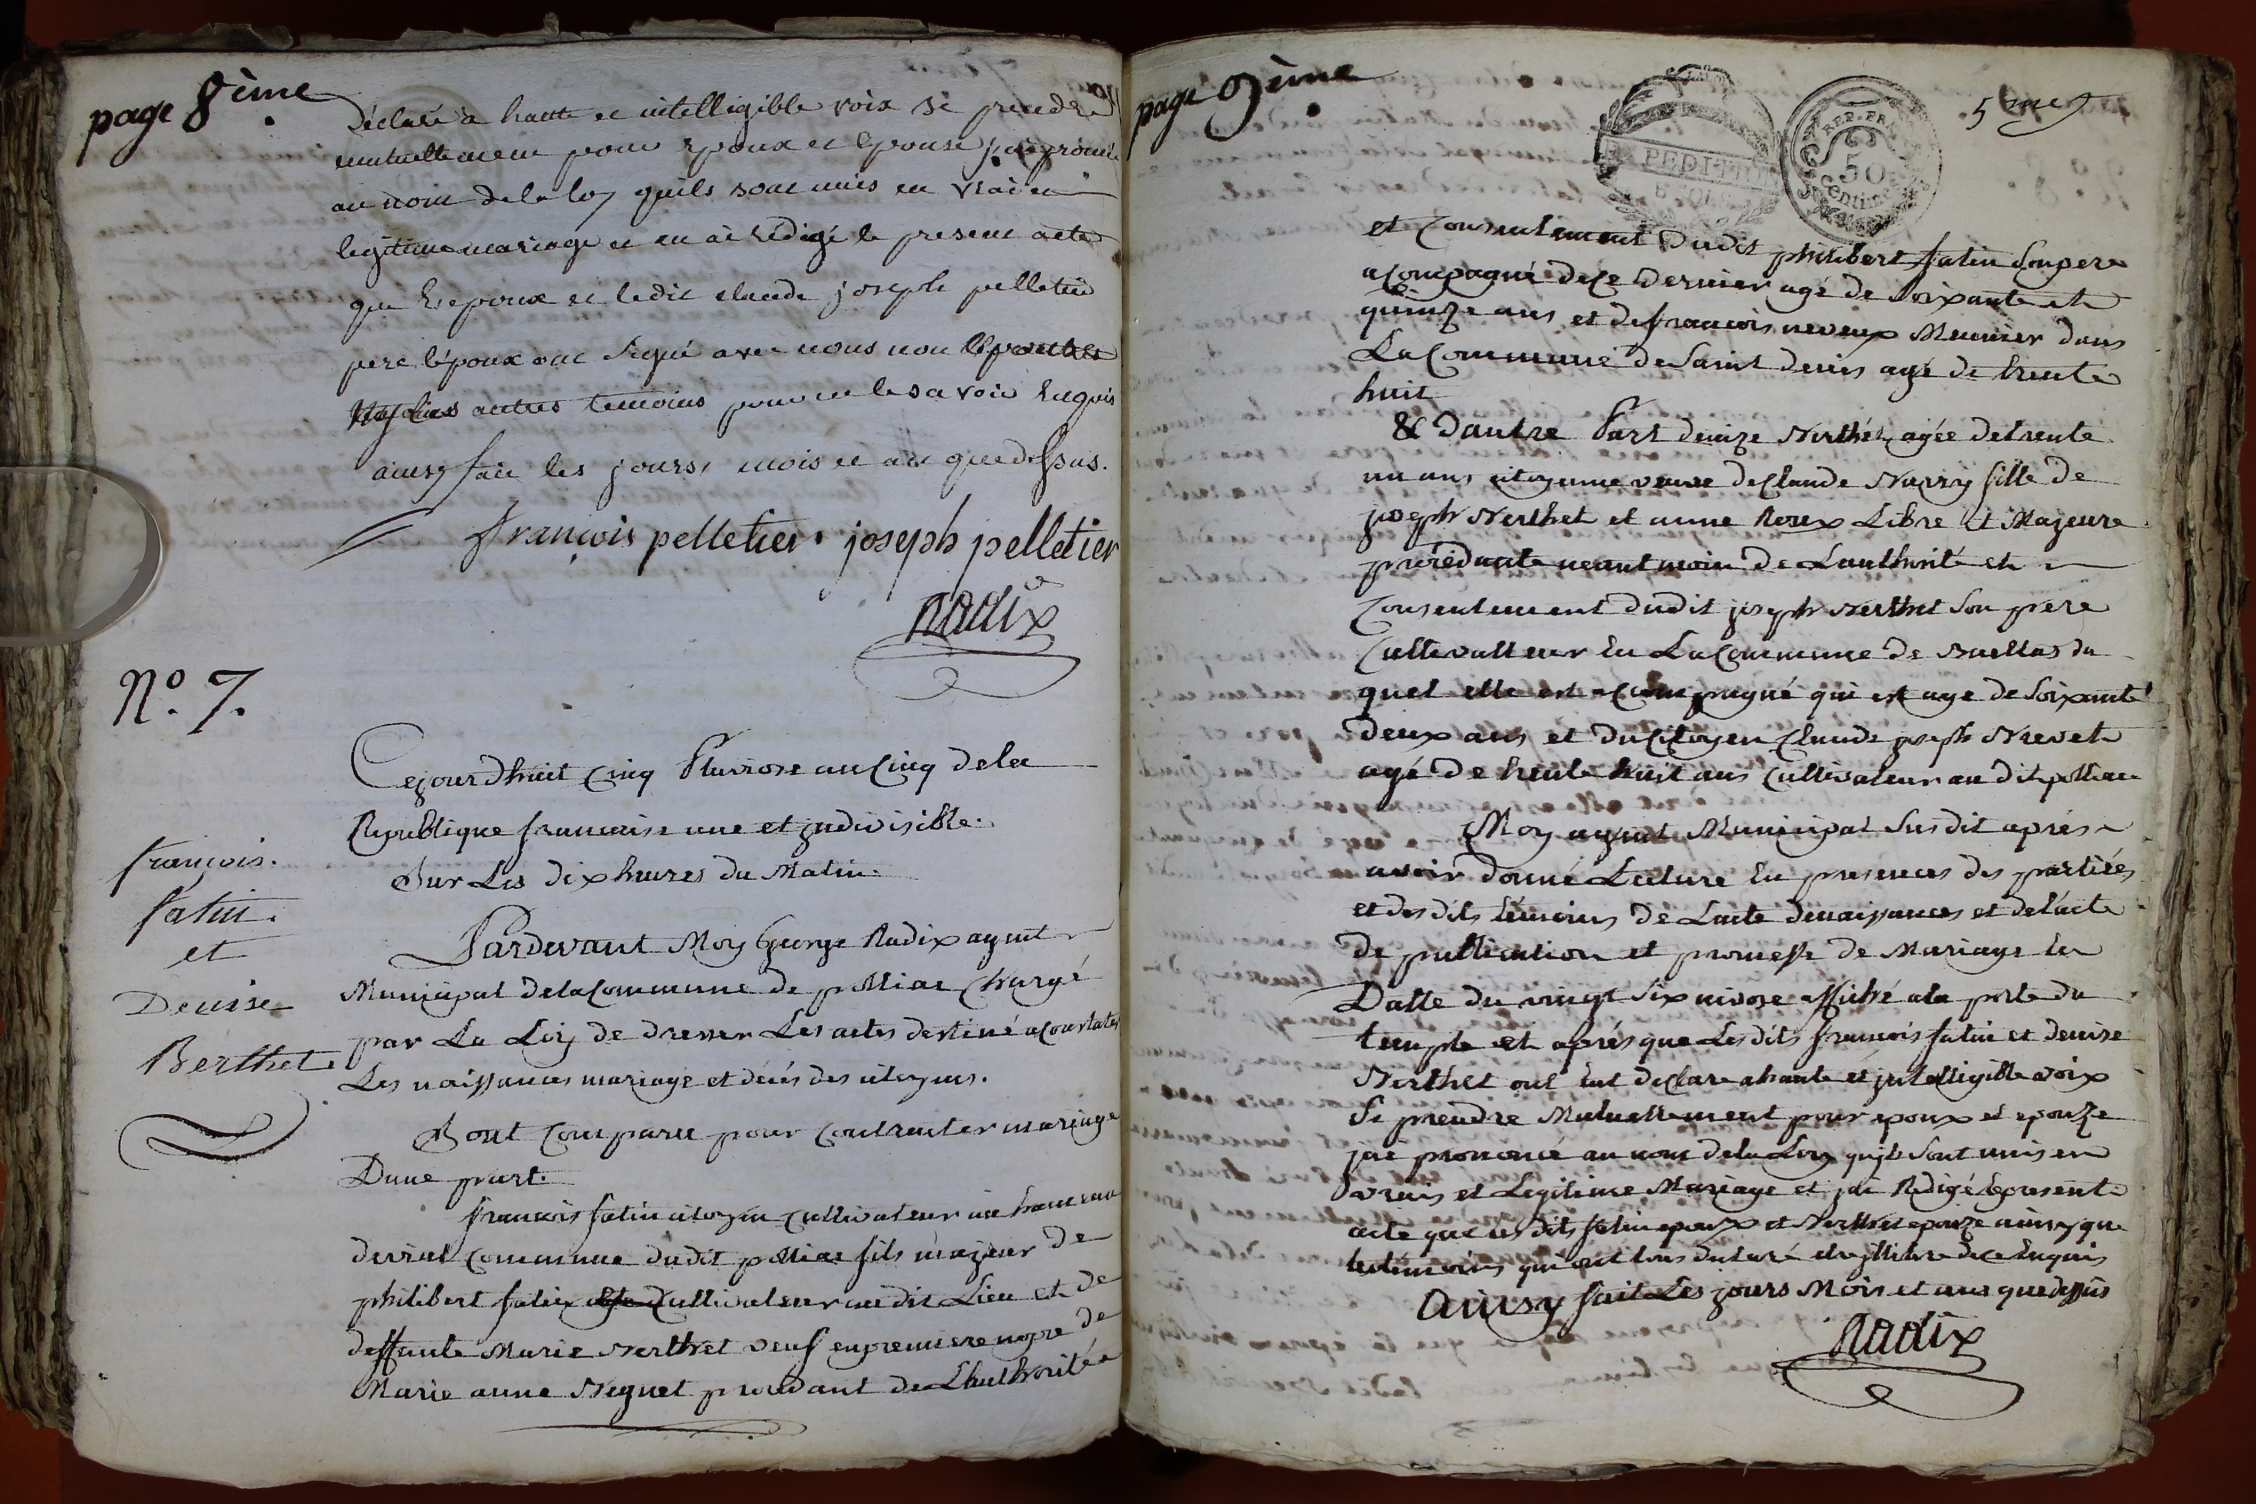 page 8ème
Déclaré à haute et intelligible voix se prendre
mutuellement pour Epoux et Epouse j'ai prononcé
au nom de la loy qu'ils sont unis en vrai et
legitime mariage et en ai redigé le present acte
que l'epoux et ledit claude joseph pelletier
pere l'époux ont signé avec nous non
autres temoins pour ne le savoir Enquis
ainsy fait les jours, mois et an que dessus.
françois pelletier. joseph pelletier
Radix
N.º 7.
françois.
fatin.
et
Denise
Berthet.
Cejourdhuit Cinq Pluviose an Cinq dela
Republique francaise une et jndivisible.
Sur Les dix heures du Matin.
Pardevant Moy George Radix agent
Municipal delaCommune de polliat Chargé
par La Loy de dresser Les actes destiné aConstater
Les naissances mariage et décés des citoyens.
Sont Comparu pour Contracter mariage
Dune part.
francois fatin citoyen Cultivateur au hameau
deviral Commune dudit polliat fils majeur de
philibert fatin Cultivateur audit Lieu et de
deffunte Marie Berthet veuf enpremiere nopce de
Marie anne Neguet procedant de Lhuthorité
page 9ème
5me
EXPEDITION
REP. FRA.
50
centimes
et Consentement dudit philibert fatin Sonpere
aCompagné deCe Dernier agé de Soixante et
quinze ans et defrancois neveux Meunier dans
LaCommune de Saint denis agé de trente
huit
& Dautre Part denize Berthet, agée detrente
un ans citoyenne veuve deClaude Navry fille de
joseph Berthet et anne Roux Libre et Majeure
procédante neantmoin de Lauthorité et
Consentement dudit joseph Berthet Son pere
Cultivatteur En LaCommune de Buellas du
quel elle est aCompagné qui est age de Soixante
deux ans et duCitoyen Claude joseph Nievet
agé De trente huit ans Cultivateur au dit polliat
Moy agent Municipal Susdit aprés
avoir donné Lecture En presences des partiées
et des dits témoins de Lacte denaissances et delacte
de publication et promesse de Mariage En
Datte du vingt Six nivose affiché ala porte du
temple et aprés que Lesdits francois fatin et denise
Berthet ont Eut declare ahaute et jntelligible voix
Se prendre Mutuellement pour epoux et epouze
jaé prononcé au nom delaLoy quils Sont unis en
vrais et Legitime Mariage et jai Redigé Lepresent
acte que les dits fatin epoux et Berthet epouze ainsy que
les témoins qui ont tous declaré deCe Enquis
Ainsy fait Les jours Mois et ans quedessus
Radix